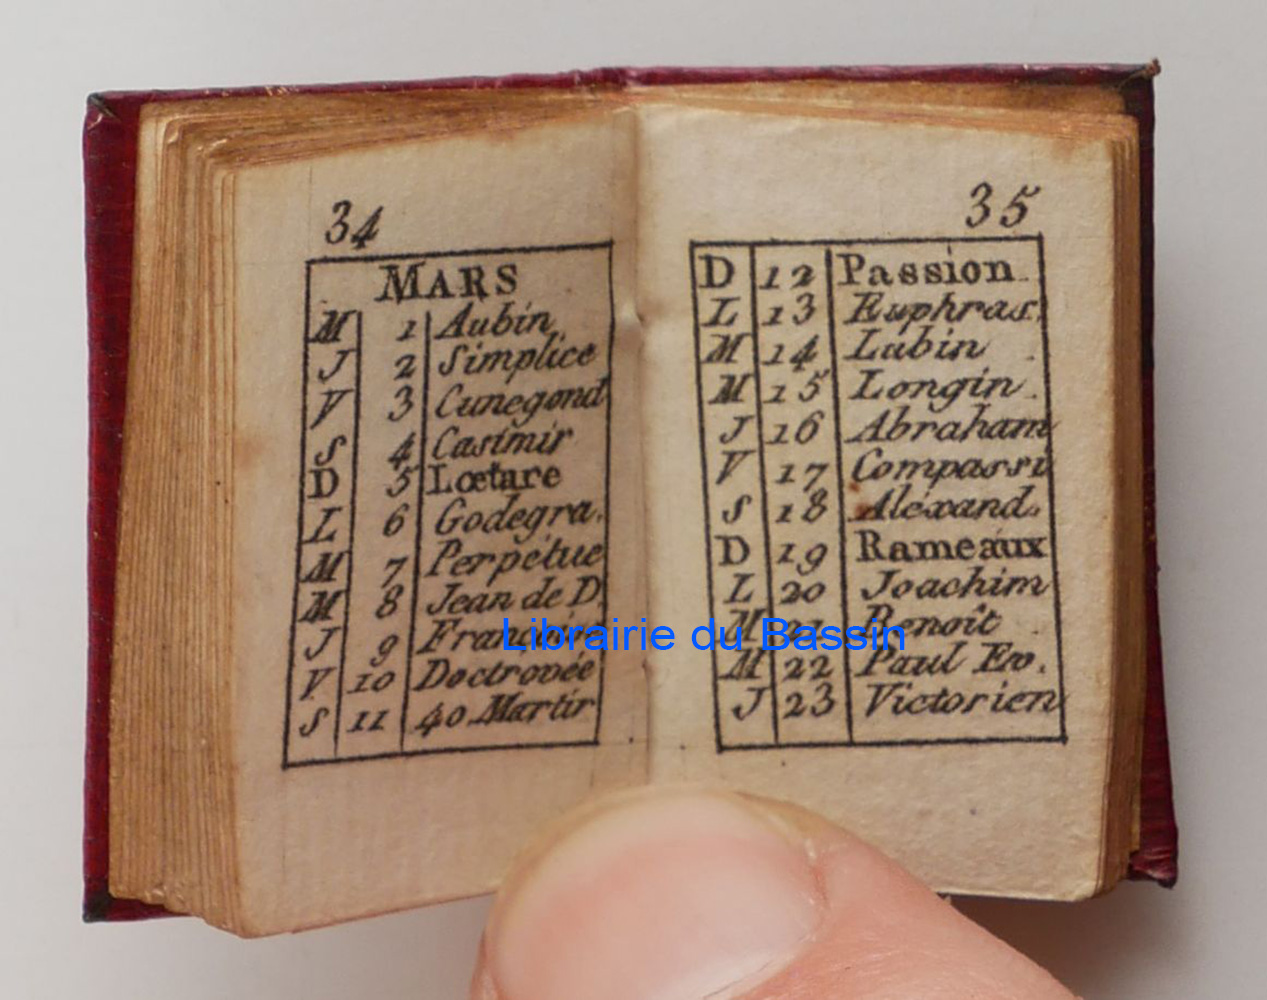 34
MARS
M 1 Aubin
J 2 Simplice
V 3 Cunegond
S 4 Casimir
D 5 Lœtare
L 6 Godegra.
M 7 Perpétue
M 8 Jean de D.
J 9 Françoise
V 10 Doctrovée
S 11 40 Martir
35
D 12 Passion
L 13 Euphras.
M 14 Lubin
M 15 Longin
J 16 Abraham
V 17 Compassi
S 18 Aléxand.
D 19 Rameaux
L 20 Joachim
M 21 Benoît
M 22 Paul Ev.
J 23 Victorien
Librairie du Bassin